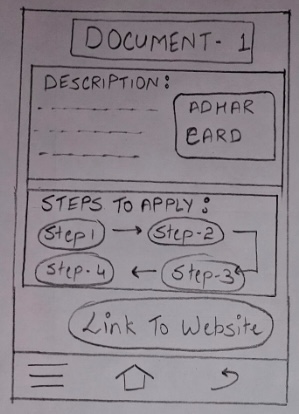 DOCUMENT- 1
DESCRIPTION:
ADHAR
CARD
STEPS TO APPLY:
Step 1
Step-2
Step-4
Step-3
Link To Website